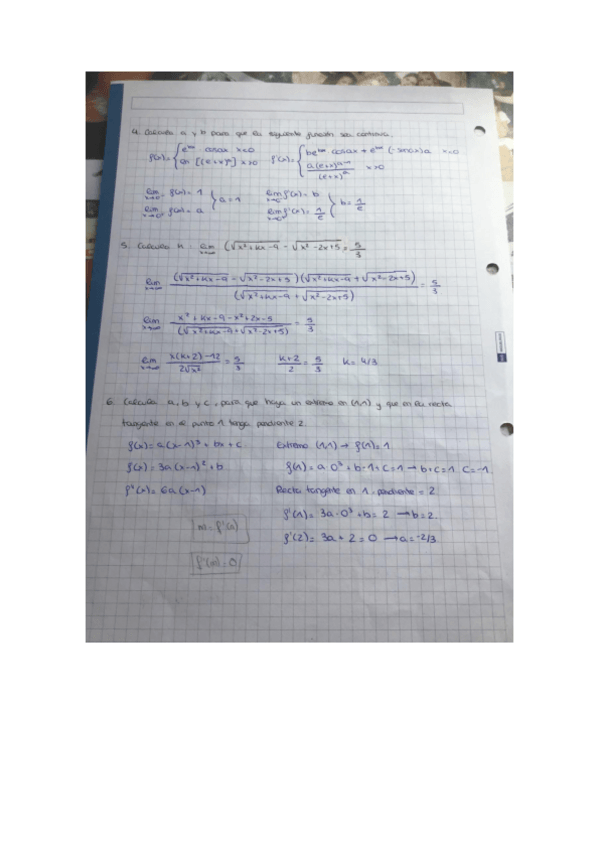 4. Calcula a y b para que la siguiente función sea continua.
f(x)= { e^bx cosax x<0 f'(x)= { be^bx cosax + e^bx (-senax)a x<0
ln [(e+x)^a] x>0 a(e+x)^a-1 / (e+x)^a x>0
lim x→0⁻ f(x) = 1 } a=1 lim x→0⁻ f'(x) = b } b = 1/e
lim x→0⁺ f(x) = a lim x→0⁺ f'(x) = 1/e
5. Calcula k : lim x→∞ (√x²+kx-9 - √x²-2x+5 = 5/3
lim x→∞ (√x²+kx-9 - √x²-2x+5)(√x²+kx-9 + √x²-2x+5) / (√x²+kx-9 + √x²-2x+5) = 5/3
lim x→∞ x²+kx-9-x²+2x-5 / (√x²+kx-9+√x²-2x+5) = 5/3
lim x→∞ x(k+2)-12 / 2√x² = 5/3 k+2/2 = 5/3 k= 4/3
6. Calcula a, b y c, para que haya un extremo en (1,1) y que en su recta
tangente en el punto 1 tenga pendiente 2.
f(x)= a(x-1)³ + bx + c Extremo (1,1) → f(1)=1
f'(x)= 3a(x-1)² + b f(1)= a·0³ + b·1+c=1 → b+c=1 c=-1
f''(x)= 6a(x-1) Recta tangente en 1, pendiente = 2
f'(1)= 3a·0³ + b = 2 → b=2.
m= f'(a)
f'(2)= 3a + 2 = 0 → a=-2/3.
f'(m)=0